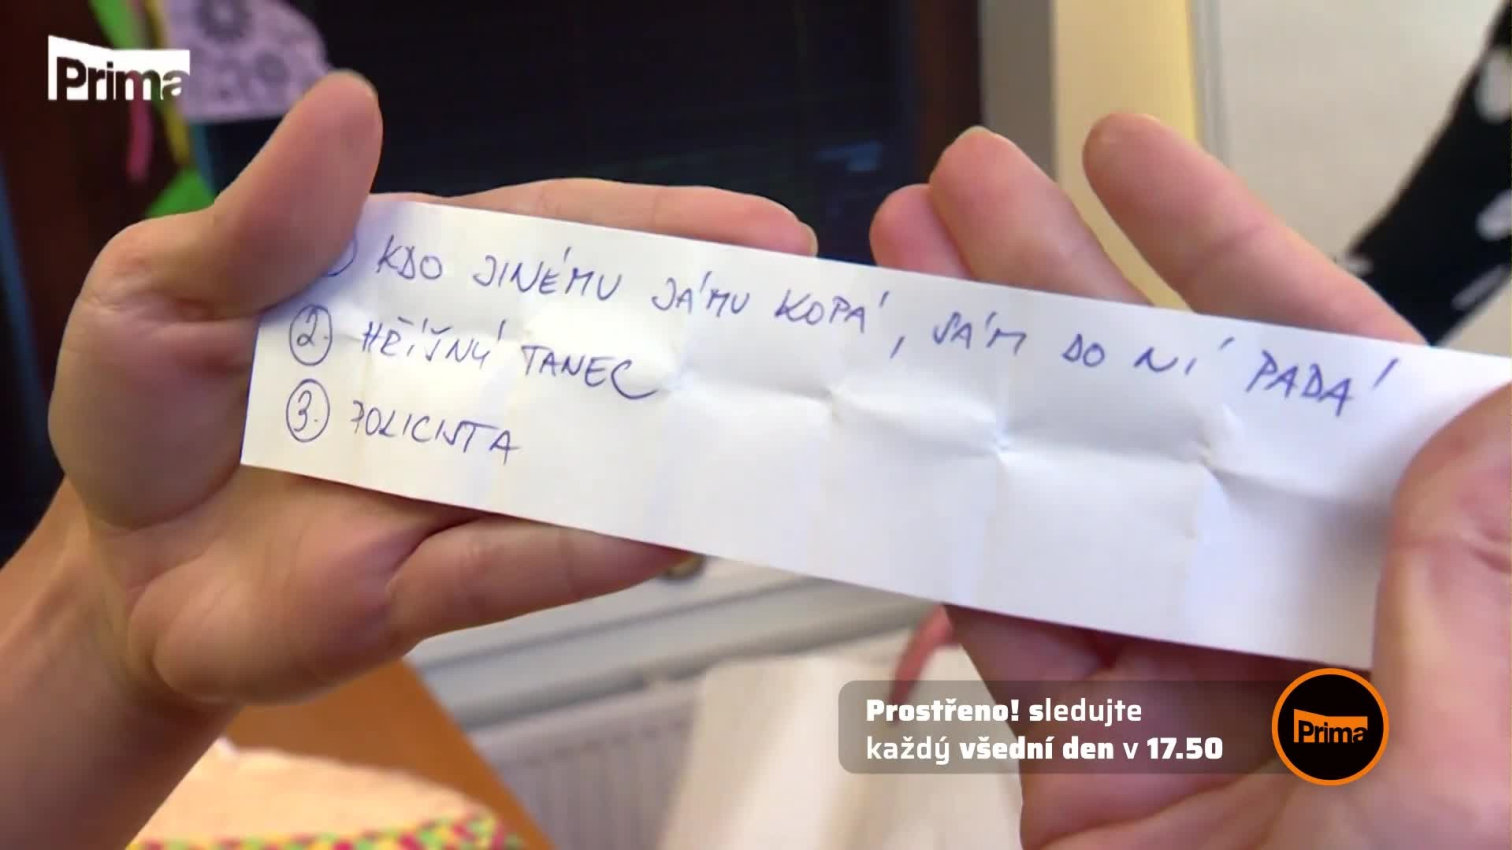 Prima
KDO JINÉMU JÁMU KOPÁ, SÁM DO NÍ PADÁ
2. HŘÍŠNÝ TANEC
3. POLICISTA
Prostřeno! sledujte
každý všední den v 17.50
Prima